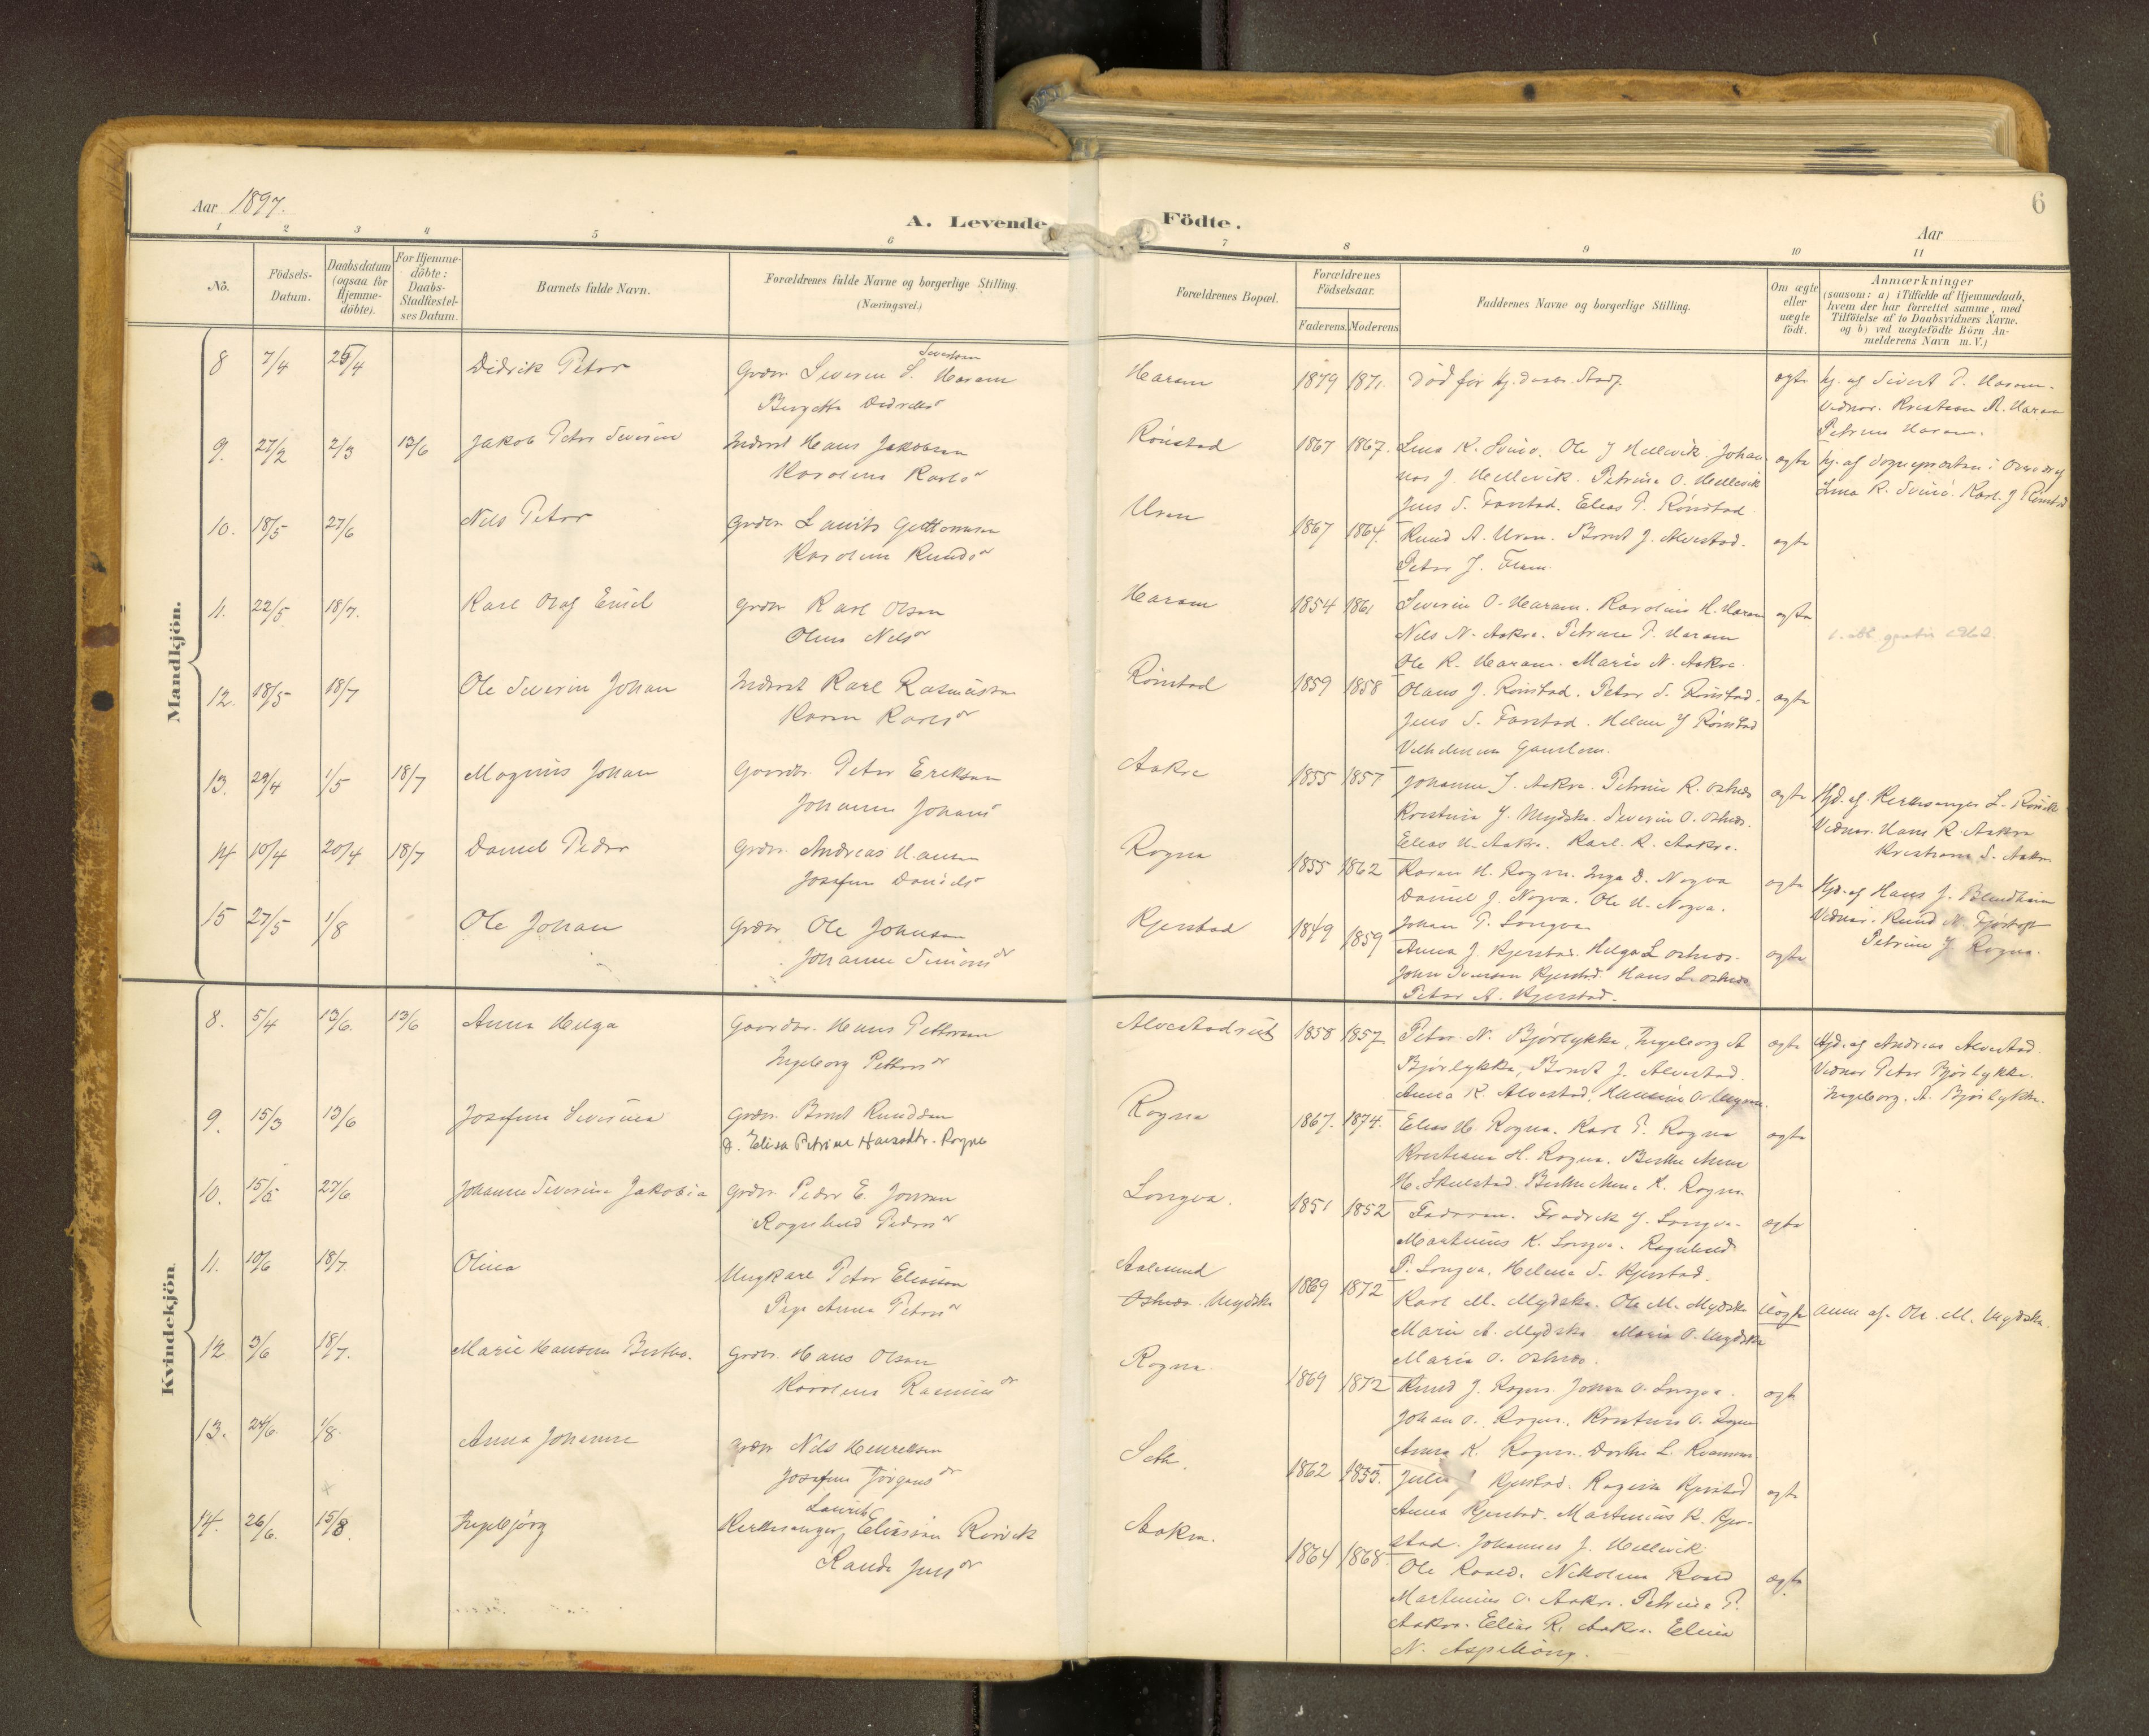 6
Aar 1897.
A. Levende Födte.
Aar
1 2 3 4 5 6 7 8 9 10 11
No.
Födsels-Datum.
Daabsdatum (ogsaa for Hjemme-döbte).
For Hjemme-döbte: Daabs-Stadfæstel-ses Datum.
Barnets fulde Navn.
Forældrenes fulde Navne og borgerlige Stilling.
(Næringsvei.)
Forældrenes Bopæl.
Forældrenes Födselsaar.
Faderens. Moderens.
Faddernes Navne og borgerlige Stilling.
Om ægte eller uægte födt.
Anmærkninger
(saasom: a) i Tilfælde af Hjemmedaab, hvem der har forrettet samme, med Tilföielse af to Daabsvidners Navne, og b) ved uægtefödte Börn Anmelderens Navn m. V.)
Mandkjön.
8 7/4 25/4 Didrik Petor Grdbr. Severin S. Haram
Severinsen
Haram 1879 1871. Död för hj. daabs. Stadf. ægte hj. af Sivert P. Haram.
Vidner. Kristian A. Haram
Petrine Haram.
9. 27/2 2/3 13/6 Jakob Petor Severin Inderst Hans Jakobsen
Karoline Karlsdr
Rönstad 1867 1867. Lina K. Svinö. Ole J Hellevik. Johan-
nes J. Hellevik. Petrine O. Hellevik
Jens S. Farstad. Elias P. Rönstad.
ægte
Lina K. Svinö. Karl J Rönstad
10. 18/5 27/6 Nils Petor Grdbr. Lauits Guttormsen
Karoline Knudsdr
Uren 1867 1864. Knud A. Uren. Bernt J. Alvestad.
Petor J. Flem.
ægte
11. 22/5 18/7. Karl Olaf Emil Grdbr Karl Olsen
Oline Nilsdr
Haram 1854 1861 Severin O. Haram. Karoline H. Haram
Nils N. Aakre. Petrine P. Haram
Ole K. Haram. Marie N. Aakre.
ægte
12. 18/5 18/7 Ole Severin Johan Inderst Karl Rasmussen
Karen Karlsdr
Rönstad 1859 1858 Olaus J. Rönstad. Petor S. Rönstad.
Jens S. Farstad. Helene J Rönstad
ægte
13. 29/4 1/5 18/7 Magnus Johan Gaardbr. Petor Eriksen
Johanne Johansdr
Aakre 1855 1857 Johanne J. Aakre. Petrine K. Oshnes
Kristine J. Mydske. Severin O. Oshnes.
Elias N. Aakre. Karl K. Aakre.
ægte Hjd. af Kirkesanger L. Rörvik
Vidner. Hans K. Aakre
Kristiane S. Aakre
14 10/4 20/4 18/7 Daniel Peder Grdbr. Andreas Hansen
Josefine Danielsdr
Rogne 1855 1862 Karen H. Rogne. Inga D. Nogva
Daniel J. Nogva. Ole H. Nogva.
Johan P. Longva
ægte Hjd. af Hans J. Blindheim
Vidner. Knud N. Fjörtoft
Petrine J. Rogne.
15 27/5 1/8 Ole Johan Grdbr Ole Johnsen
Johanne Simonsdr
Kjerstad 1849 1859 Anna J. Kjerstad. Helga L Oshnes.
John Iversen Kjerstad. Hans L. Oshnes
Petor A. Kjerstad.
ægte
Kvindekjön.
8. 5/4 13/6. 13/6 Anna Helga Gaardbr. Hans Pettersen
Ingeborg Pettersdr
1858 1857 Petor N. Björlykke, Ingeborg A
Björlykke, Bernt J. Alvestad.
ægte Hjd. af Andreas Alvestad
Vidner Petor Björlykke.
Ingeborg. A. Björlykke.
9. 15/3 13/6 Josefine Severine Grdbr. Bernt Knudsen
g. Elisa Petrine Hansdtr. Rogne
Rogne 1867. 1874. Elias H. Rogne. Karl P. Rogne
Kristiane H. Rogne. Berthe Anne
H. Skulstad. Berthe Anne K. Rogne
ægte
10. 15/5 27/6 Johanne Severine Jakobia Grdbr. Peder E. Jonsen
Ragnhild Pedersdr
Longva. 1851 1852 Faderen. Fredrik J. Longva.
Martinus K. Longva. Ragnhild
P. Longva. Helene S. Kjerstad.
ægte
11. 10/6 18/7. Olina Ungkarl Petor Eliassen
Pige Anna Petersdr
Aalesund
Oshnes. Mydske
1869 1872 Karl M. Mydske. Ole M. Mydske
Marie A. Mydske Marie O. Mydske
Marie O. Oshnes.
Uægte Anm. af. Ole. M. Mydske.
12 3/6 18/7. Marie Hansine Berthe. Grdbr. Hans Olsen
Karoline Rasmusdr
Rogne. 1869 1872 Knud J. Rogne. Johan O. Longva.
Johan O. Rogne, Kristine O. Rogne
ægte
13. 24/6. 1/8. Anna Johanne Grdbr Nils Henriksen
Josefine Jörgensdr
Seth. 1862 1855. Kjerstad. Kjerstad
Anna Kjerstad. Martinus K. Kjer-
stad. Johannes J. Hellevik
ægte
14. 26/6. 15/8. Ingebjörg Kirkesanger Lauritz Eliassen Rörvik
Randi Jensdr
Aakre. 1864 1868. Ole Roald. Nikoline Roald
Martinus O. Aakre. Petrine P.
Aakre. Elias K. Aakre. Elina
N. Aspehaug.
ægte